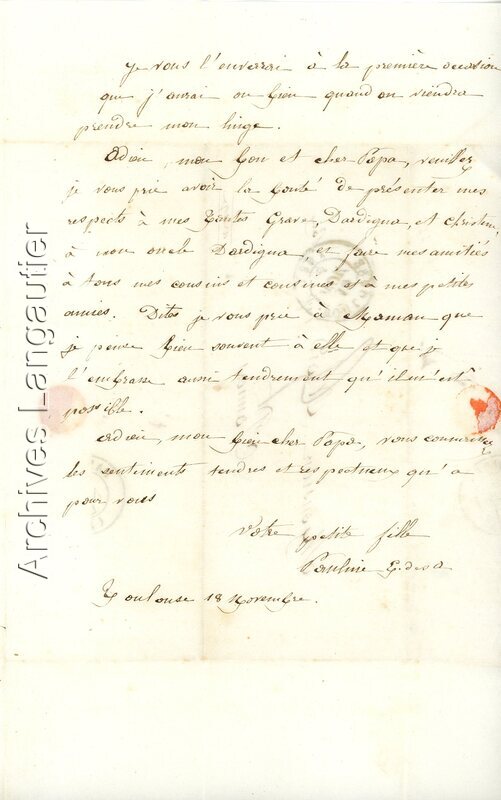 je vous l'enverrai à la première occasion
que j'aurai ou bien quand on viendra
prendre mon linge.
Adieu, mon bon et cher Papa, veuillez
je vous prie avoir la bonté de présenter mes
respects à mes tantes Grave, Dardigna, et Christine,
à mon oncle Dardigna, et faire mes amitiés
à tous mes cousins et cousines et à mes petites
amies. Dites je vous prie à Maman que
je pense bien souvent à elle et que je
l'embrasse aussi tendrement qu'il m'est
possible.
adieu, mon bien cher Papa, vous connaissez
les sentiments tendres et respectueux qu'a
pour vous
votre petite fille
Pauline
Toulouse 18 Novembre.
Archives Langautier